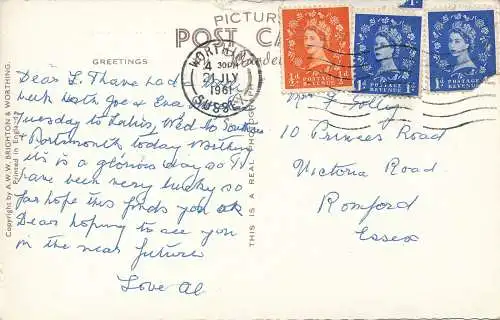 PICTUR
POST CA
GREETINGS
WORTHING
4 30PM
21 JLY
1961
SUSSEX
½D POSTAGE REVENUE ½D
1D POSTAGE REVENUE 1D
1D POSTAGE REVENUE 1D
Dear L. Thave had
week North Joe & Eva
Tuesday to Wed to
& Portsmouth today
its is a glorious day so
have been very lucky so
far hope this finds you ok
Dear hoping to see you
in the near future
Love Al
Mrs F Jolly
10 Princes Road
Victoria Road
Romford
Essex
THIS IS A REAL PHOTOGRAPH
Copyright by A.W.W. BRIGHTON & WORTHING.
Printed in Engl